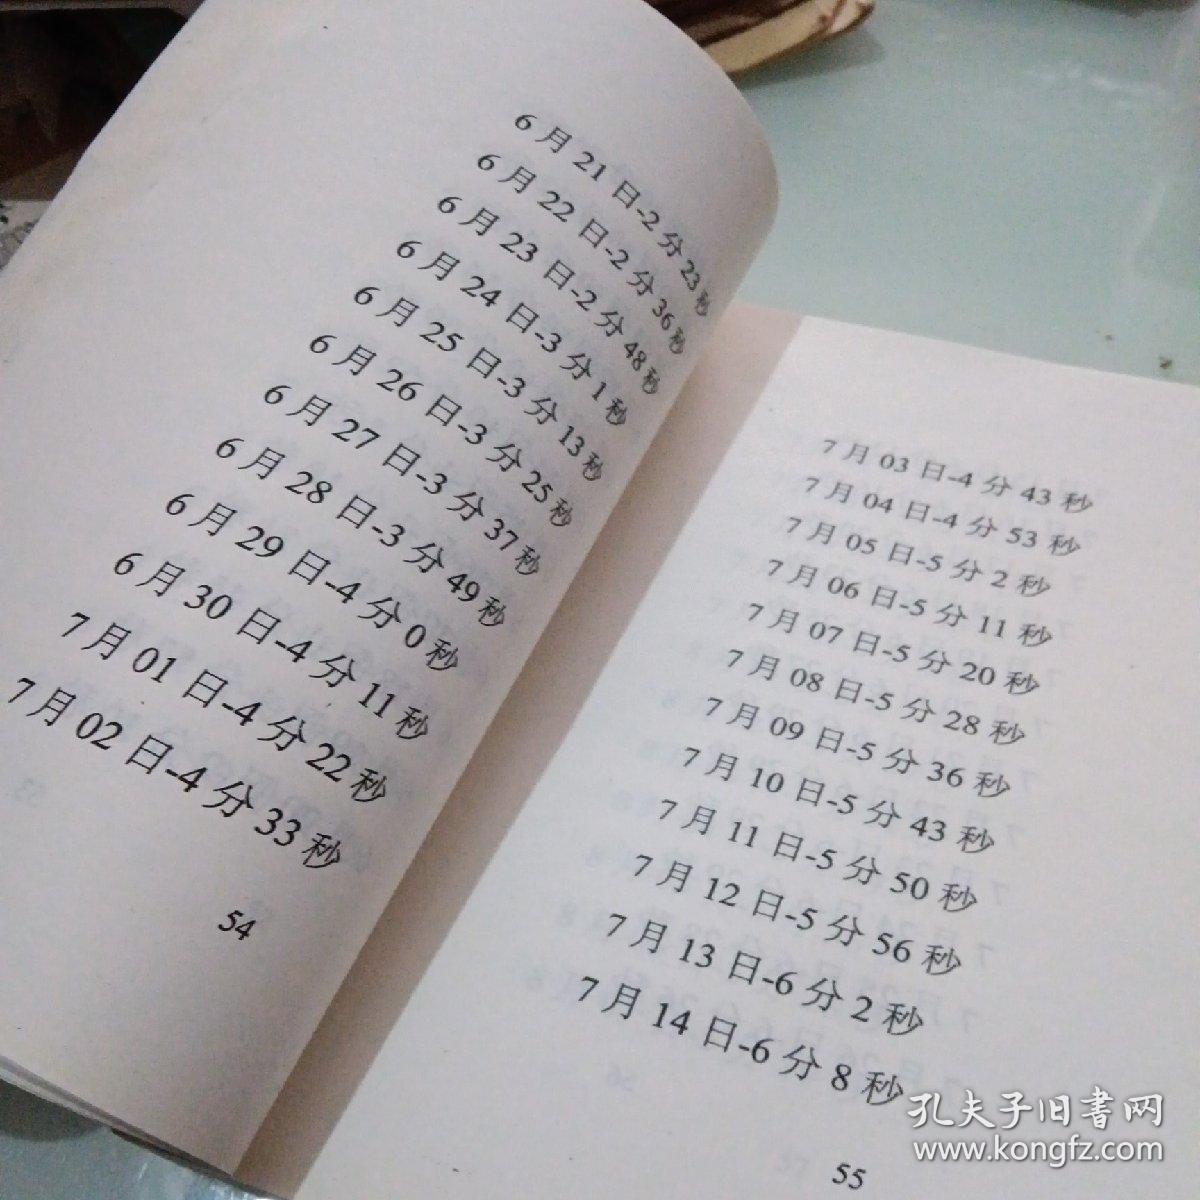 6月21日-2分23秒
6月22日-2分36秒
6月23日-2分48秒
6月24日-3分1秒
6月25日-3分13秒
6月26日-3分25秒
6月27日-3分37秒
6月28日-3分49秒
6月29日-4分0秒
6月30日-4分11秒
7月01日-4分22秒
7月02日-4分33秒
54
7月03日-4分43秒
7月04日-4分53秒
7月05日-5分2秒
7月06日-5分11秒
7月07日-5分20秒
7月08日-5分28秒
7月09日-5分36秒
7月10日-5分43秒
7月11日-5分50秒
7月12日-5分56秒
7月13日-6分2秒
7月14日-6分8秒
55
孔夫子旧书网
www.kongfz.com